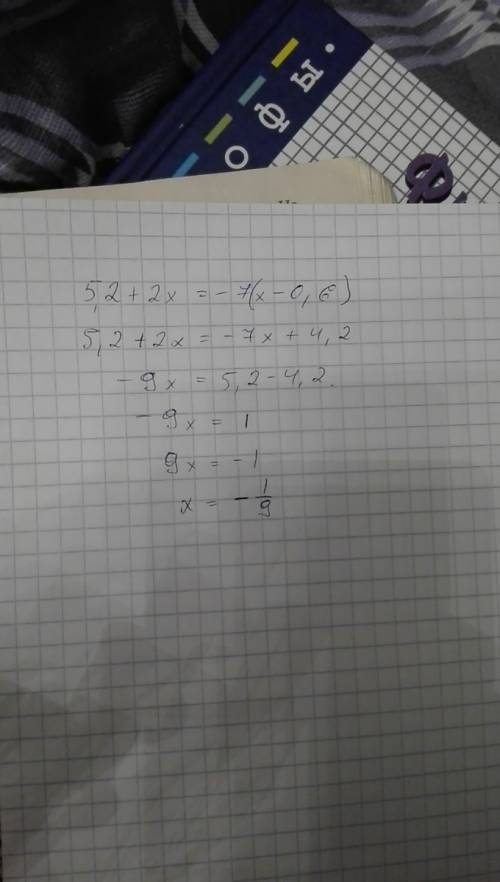 офы.
5,2 + 2x = - 7(x - 0,6)
5,2 + 2x = - 7x + 4,2
- 9x = 5,2 - 4,2.
- 9x = 1
9x = - 1
x = - 1/9